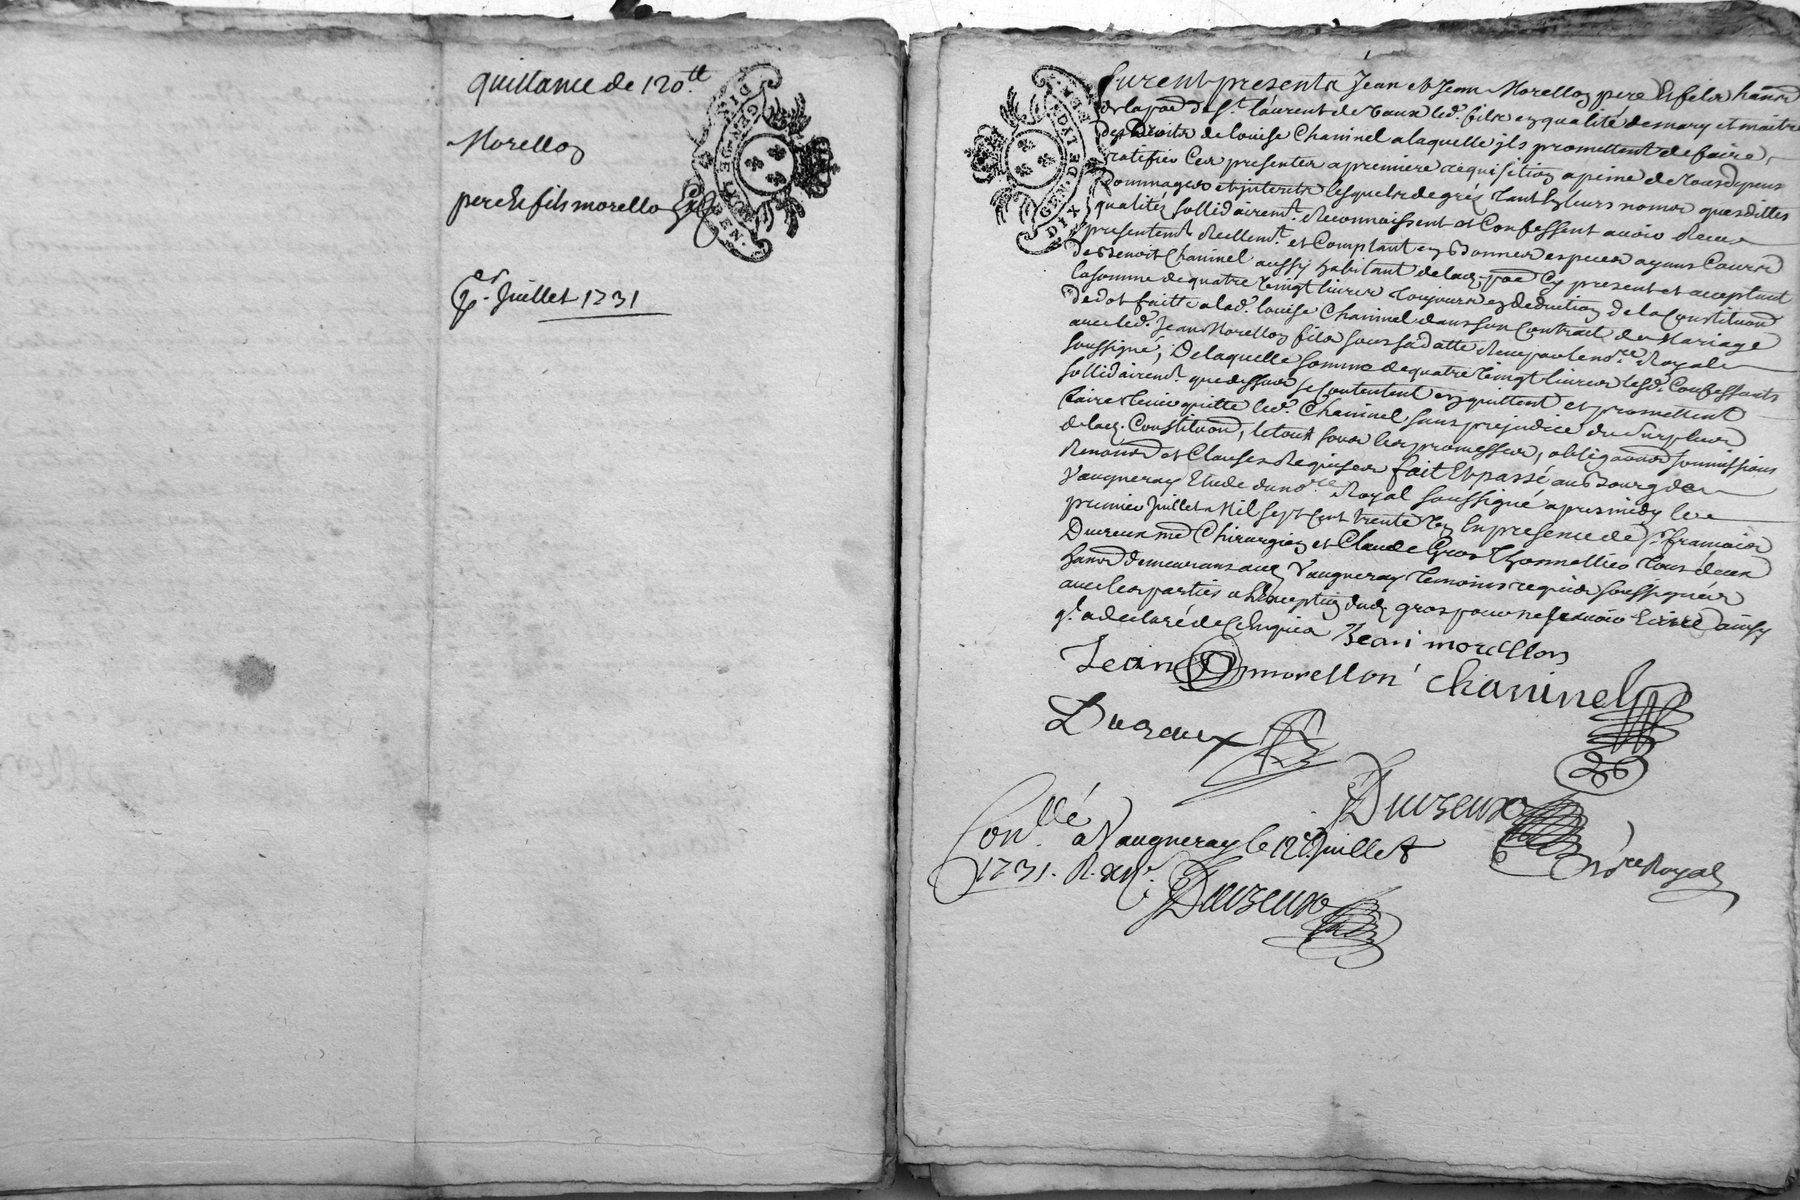 quittance de 120ᵗᵗ
Morellon
pere et fils morellon
GEN. DE LYON. DIX DEN.
pr. Juillet 1731
GEN. DE LYON. DIX DEN.
furent presents Jean et Jean Morellon pere et fils habns
de la pse de St. laurent de Vaux led. fils en qualité de mary et maitre
des droits de louise Chaninel a laquelle ils promettent de faire
ratifier Ces presentes a premiere requisition a peine de tous depens
dommages et interets lesquels de gré tant en leurs noms quesdittes
qualités sollidairemt. Reconnoissent et Confessent avoir Receu
presentemt. Reellemt. et Comptant en bonnes especes ayans Cours
de Benoit Chaninel aussy habitant de lad. pse Cy present et acceptant
la somme de quatre vingt livres toujours en deduction de la Constituon
de dot faitte a lad. louise Chaninel dans son Contrait de Mariage
avec led. Jean Morellon fils sous sa datte Receu par le nore. Royal
soussigné, De laquelle somme de quatre vingt livres lesd. Confessants
sollidairemt. que dessus se Contentent en quittent et promettent
faire tenir quitte led. Chaninel sans prejudice du surplus
de lad. Constituon, le tout sous les promesses, obligaons soumissions
Renonons et Clauses Requises fait et passé au bourg de
Vaugneray Etude du nore Royal soussigné apres midy le
premier Juillet Mil sept Cent trente un En presence de sr. francois
Dureux me Chirurgien et Claude Gros thonnellier tous deux
habns demeurans aud. Vaugneray temoins requis soussignés
avec les parties a l'Exception dud. gros pour ne scavoir Ecrire ainsy
ql. a declaré de Ce Enquis Jean morellon
Jean morellon Chaninel
Dureux
Dureux
nore Royal
Conllé. a Vaugneray le 12e. Juillet
1731. R.
Dureux